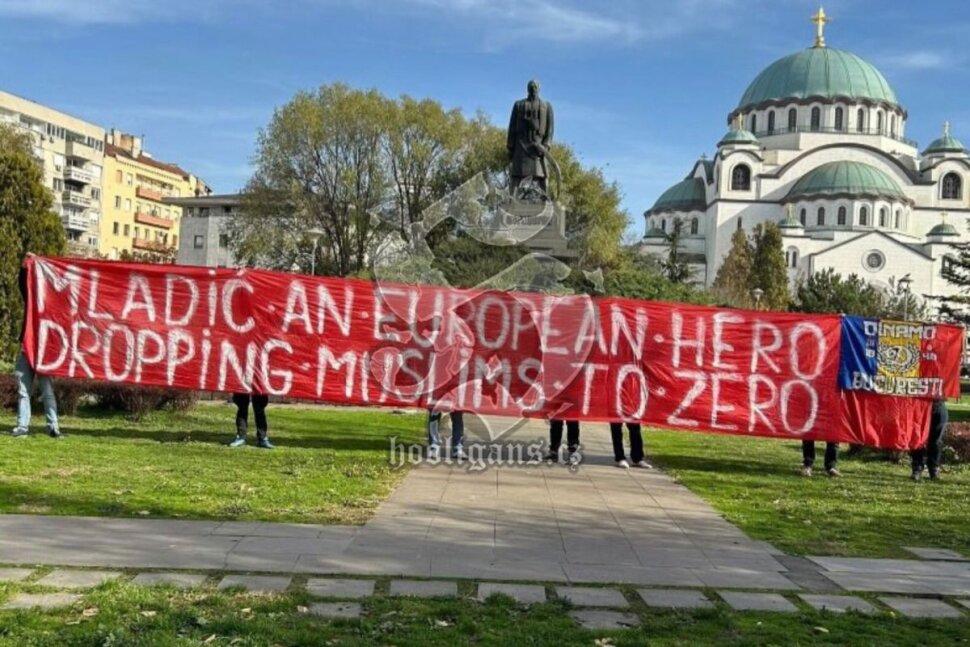 MLADIĆ·AN·EUROPEAN·HERO
DROPPING·MUSLIMS·TO·ZERO
DINAMO
19 48
BUCUREȘTI
hooligans.cz